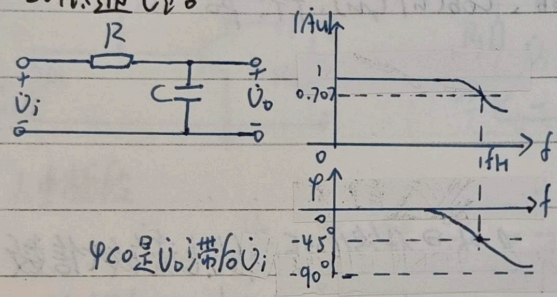 R
+
U̇i
-
C
+
U̇o
-
|Ȧu|
1
0.707
0
fH
f
φ
0
f
-45°
-90°
φ<0是U̇o滞后U̇i